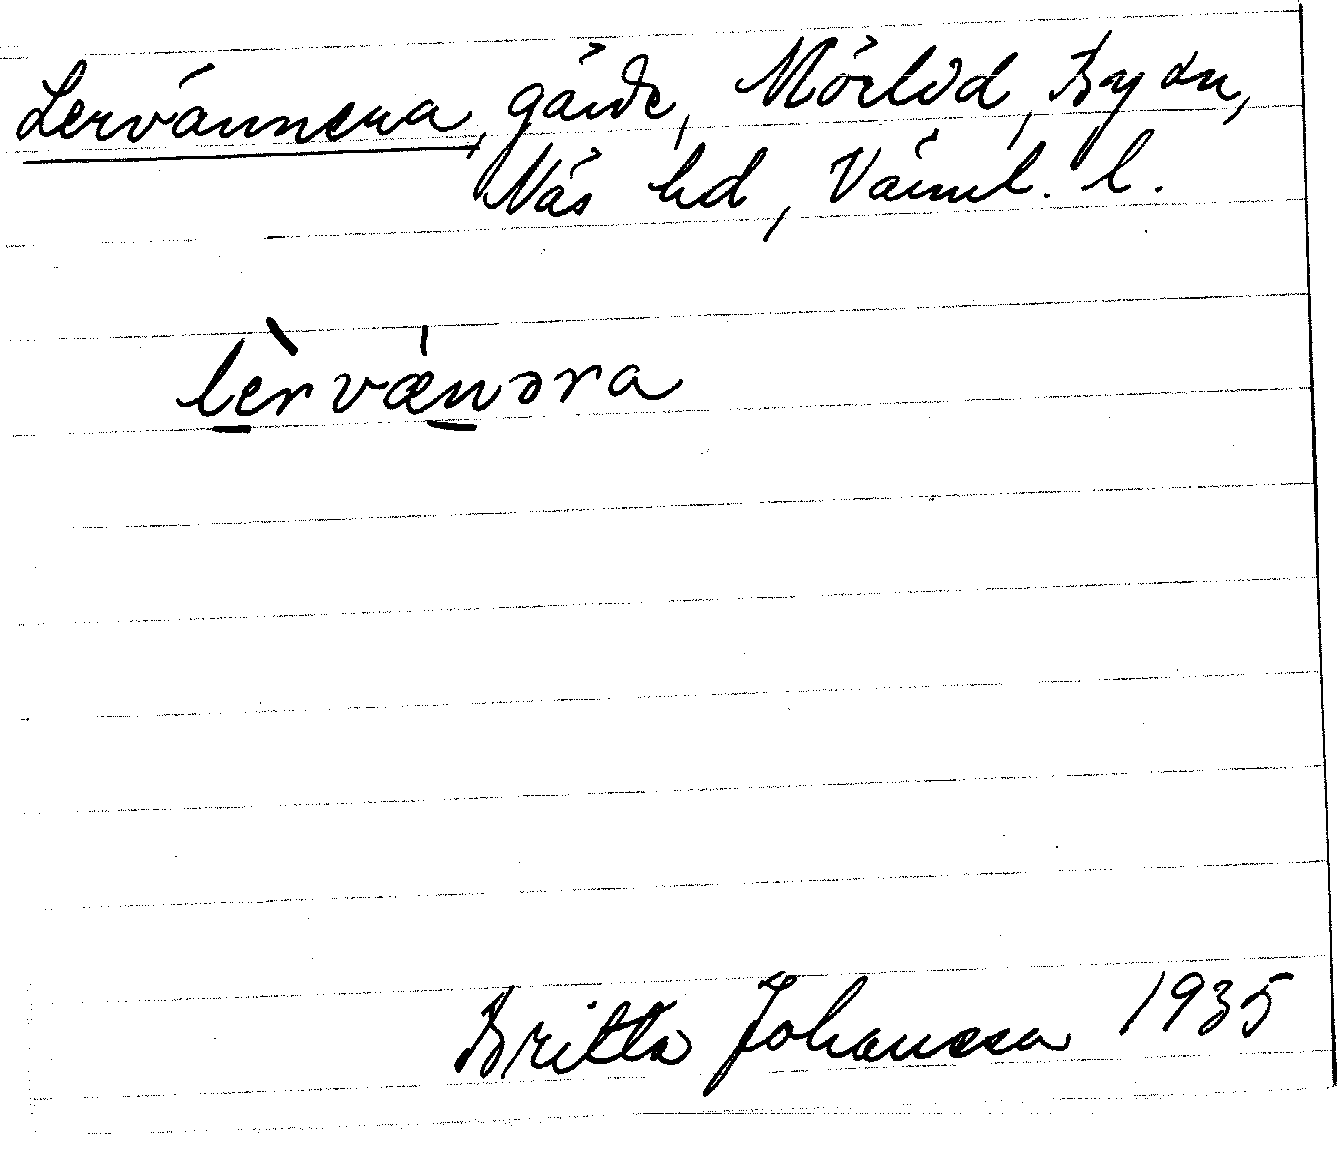 Lervännerna, gärde, Mörlöd, By sn,
Näs hd, Värml. l.
lèrvænəra
Britta Johansson 1935